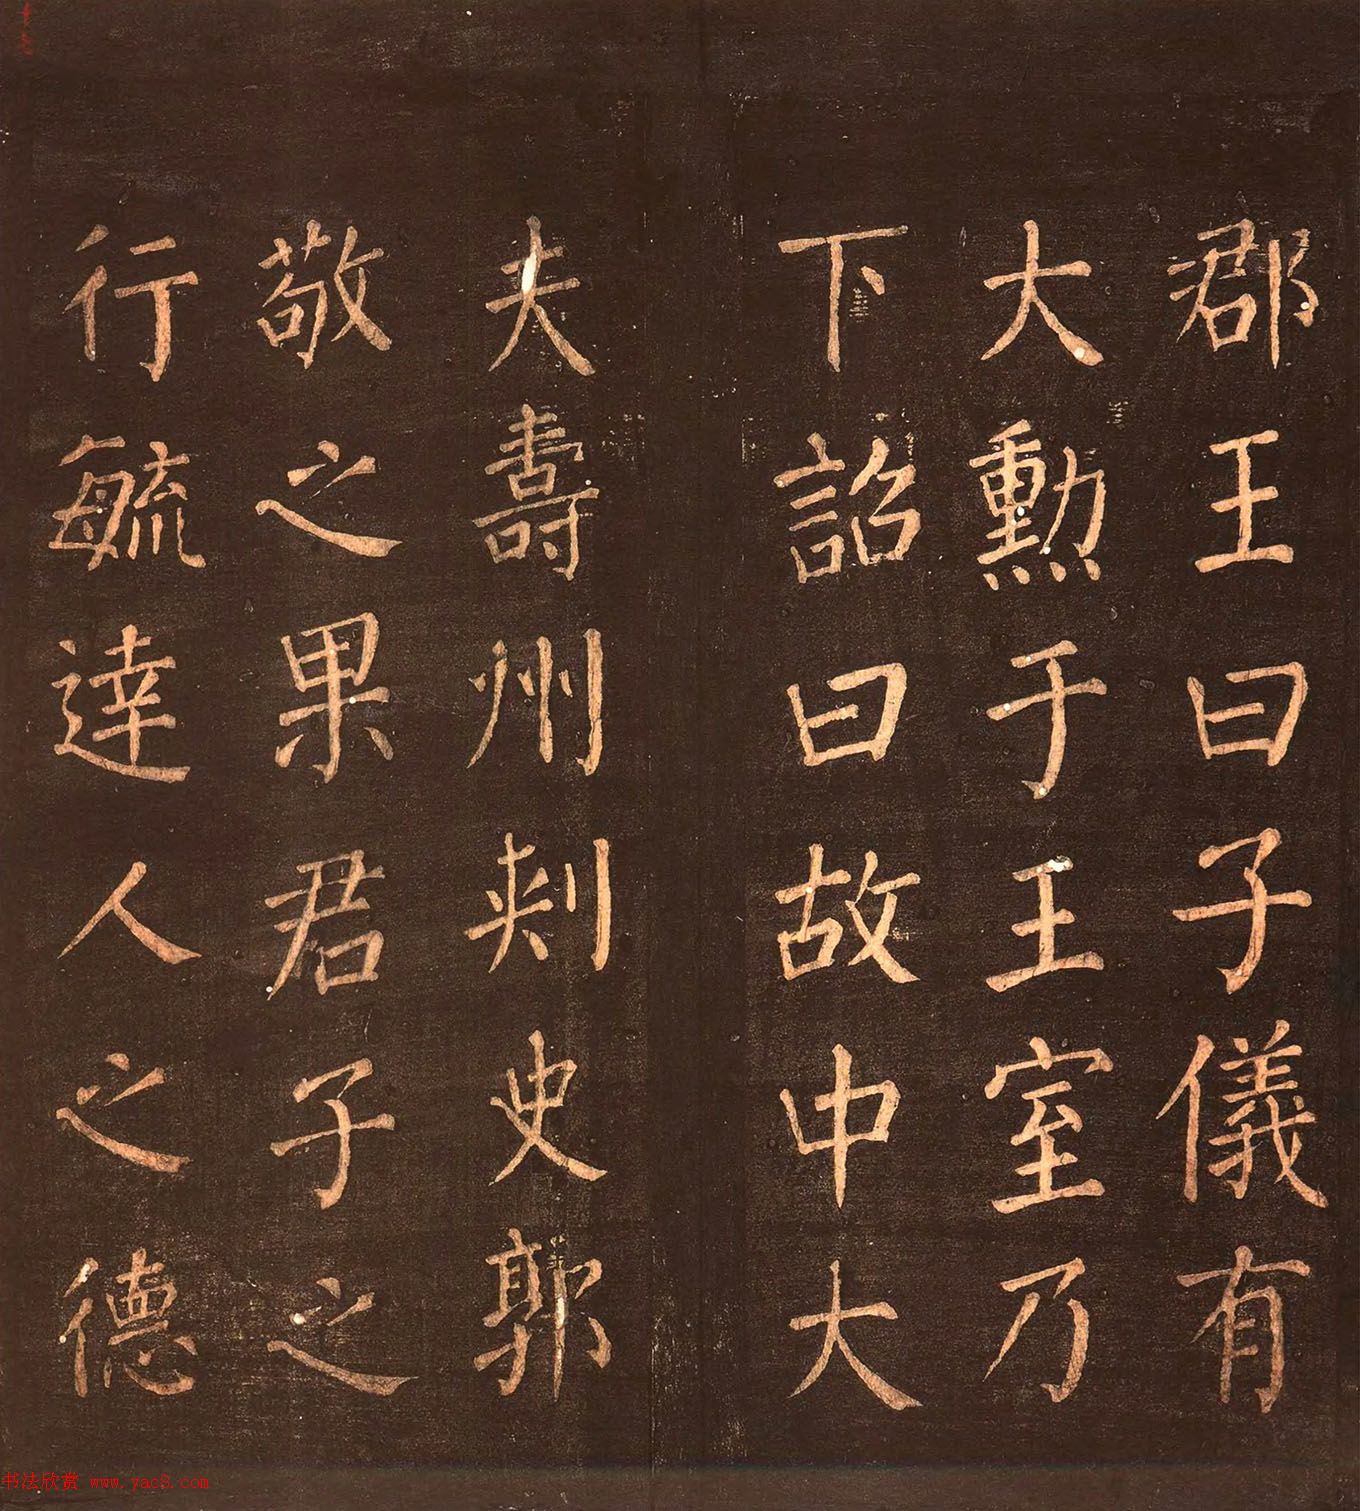 郡王曰子儀有
大勳于王室乃
下詔曰故中大
夫壽州刾史郭
敬之果君子之
行毓達人之德
书法欣赏 www.yac8.com